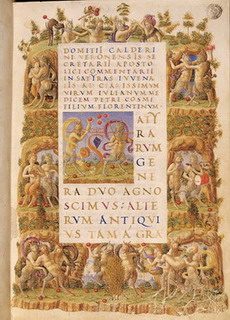 DOMITII CALDERI
NI VERONENSIS SE
CRETARII APOSTO
LICI COMMENTARII
IN SATYRAS IVVENA
LIS AD CLARISSIMVM
VIRVM IVLIANVM ME
DICEM PETRI COSMI
FILIVM FLORENTINVM
SATY
RA
RVM G
E
NE
RA DVO AGNO
SCIMVS: ALTE
RVM ANTIQVI
VS TAM A GRA